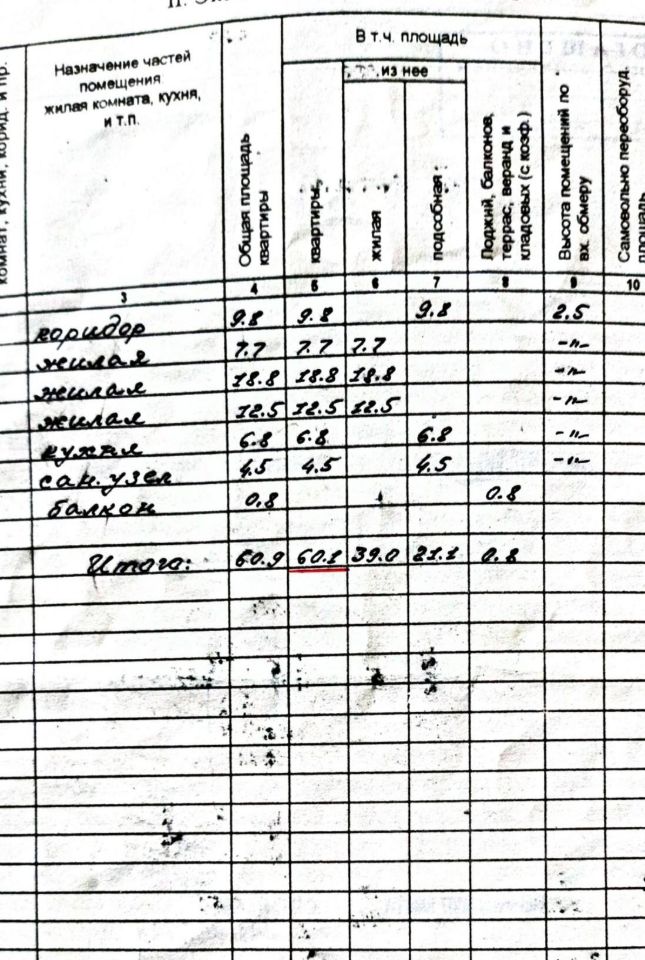 В т.ч. площадь
Назначение частей
помещения:
жилая комната, кухня,
и т.п.
из нее
комнат, кухни, корид. и пр.
Общая площадь
квартиры
квартиры
жилая
подсобная
Лоджий, балконов,
террас, веранд и
кладовых (с коэф.)
Высота помещений по
вх. обмеру
Самовольно переоборуд.
площадь
3 4 5 6 7 8 9 10
коридор 9.8 9.8 9.8 2.5
жилая 7.7 7.7 7.7 -"-
жилая 18.8 18.8 18.8 -"-
жилая 12.5 12.5 12.5 -"-
кухня 6.8 6.8 6.8 -"-
сан. узел 4.5 4.5 4.5 -"-
балкон 0.8 0.8
Итого: 60.9 60.1 39.0 21.1 0.8